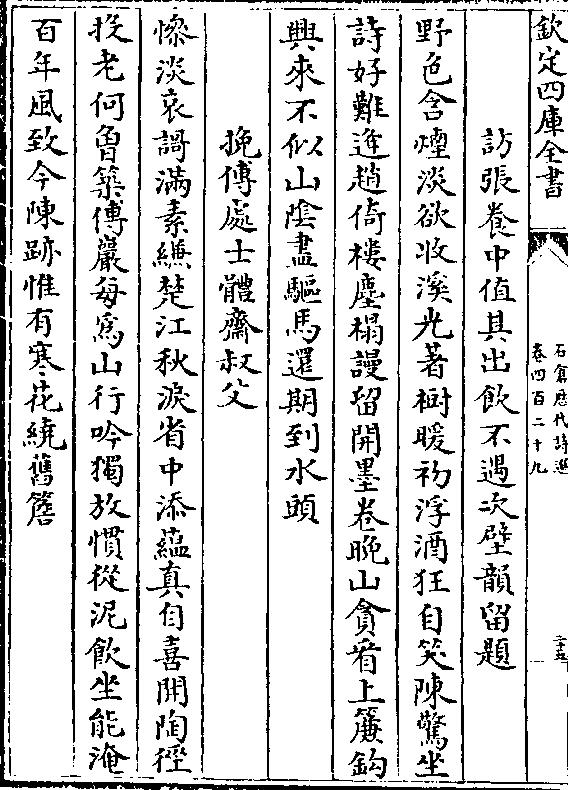 欽定四庫全書
石倉歷代詩選
卷四百二十九
訪張養中值其出飲不遇次壁韻留題
野色含煙淡欲收溪光著樹暖初浮酒狂自笑陳驚坐
詩好難逢趙倚樓塵榻謾留開墨卷晚山貪看上簾鈎
興來不似山陰盡驅馬還期到水頭
挽傅處士體齋叔父
慘淡哀謌滿素縑楚江秋淚省中添蘊真自喜開陶徑
投老何魯築傅巖每為山行吟獨放慣從泥飲坐能淹
百年風致今陳跡惟有寒花繞舊簷